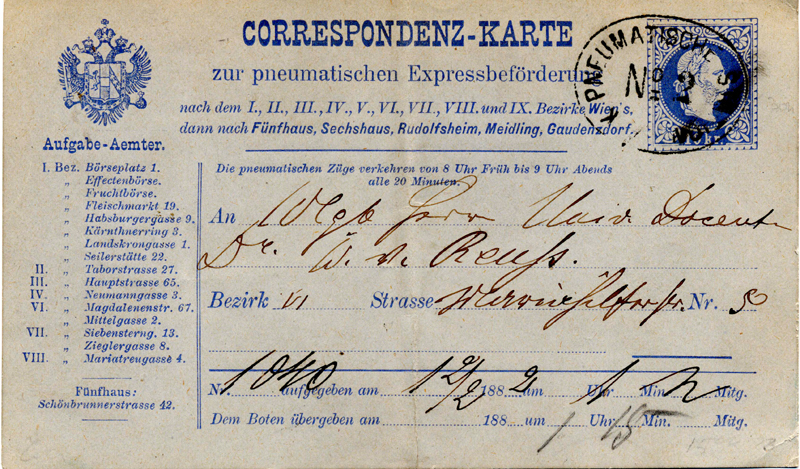 CORRESPONDENZ-KARTE
zur pneumatischen Expressbeförderung
nach dem I., II., III., IV., V., VI., VII., VIII. und IX. Bezirke Wien's,
dann nach Fünfhaus, Sechshaus, Rudolfsheim, Meidling, Gaudenzdorf.
K.K. PNEUMATISCHE
No 2
Aufgabe-Aemter.
I. Bez. Börseplatz 1.
„ Effectenbörse.
„ Fruchtbörse.
„ Fleischmarkt 19.
„ Habsburgergasse 9.
„ Kärnthnerring 3.
„ Landskrongasse 1.
„ Seilerstätte 22.
II. „ Taborstrasse 27.
III. „ Hauptstrasse 65.
IV. „ Neumanngasse 3.
VI. „ Magdalenenstr. 67.
„ Mittelgasse 2.
VII. „ Siebensterng. 13.
„ Zieglergasse 8.
VIII. „ Mariatreugasse 4.
Fünfhaus:
Schönbrunnerstrasse 42.
Die pneumatischen Züge verkehren von 8 Uhr Früh bis 9 Uhr Abends
alle 20 Minuten.
An Wlgb Herrn Univ. Docent
Dr. A. v. Reuss.
Bezirk VI Strasse Mariahilferstr. Nr. 50
Nr. 1040 aufgegeben am 12/2 188 2 um Uhr 1 Min. Mitg.
Dem Boten übergeben am 188 um 1 Uhr 15 Min. Mitg.